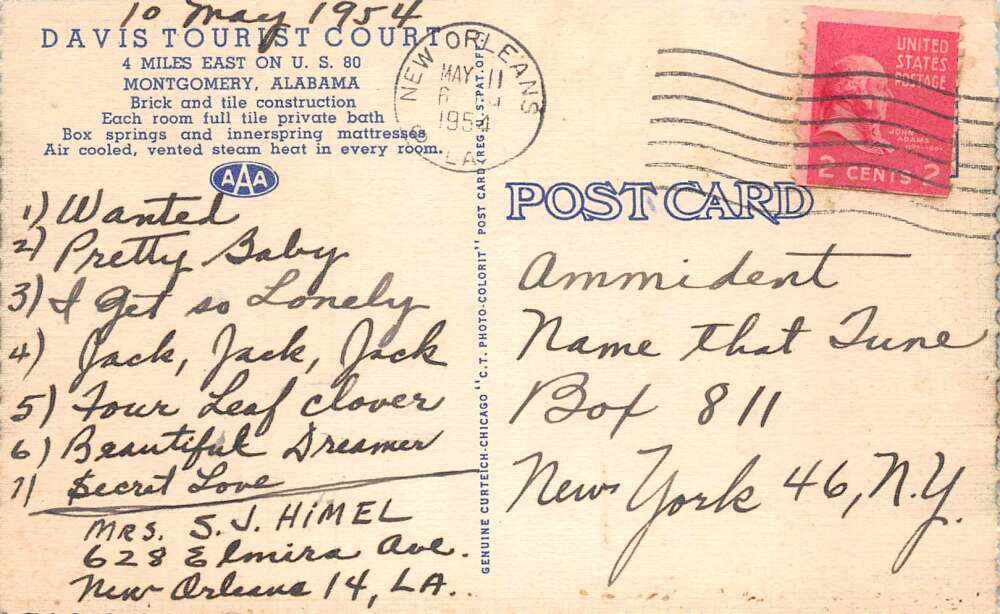 10 May 1954
DAVIS TOURIST COURT
4 MILES EAST ON U. S. 80
MONTGOMERY, ALABAMA
Brick and tile construction
Each room full tile private bath
Box springs and innerspring mattresses
Air cooled, vented steam heat in every room.
AAA
1) Wanted
2) Pretty Baby
3) I Get so Lonely
4) Jack, Jack, Jack
5) Four Leaf Clover
6) Beautiful Dreamer
7) Secret Love
MRS. S. J. HIMEL
628 Elmira Ave.
New Orleans 14, LA.
GENUINE CURTEICH-CHICAGO "C.T. PHOTO-COLORIT" POST CARD (REG. U.S. PAT. OFF.)
NEW ORLEANS
MAY 11
1954
LA
UNITED
STATES
POSTAGE
JOHN
ADAMS
2 CENTS 2
POST CARD
Ammident
Name that Tune
Box 811
New York 46, N.Y.